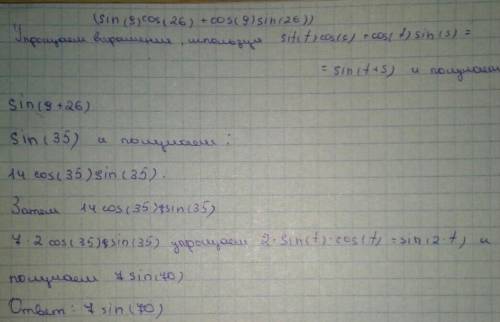 (sin(9)cos(26) + cos(9)sin(26))
Упрощаем выражение, используя sit(t)cos(s) + cos(t)sin(s) =
= sin(t+s) и получаем
sin(9+26)
sin(35) и получаем:
14 cos(35)sin(35).
Затем 14 cos(35)sin(35)
7·2 cos(35)sin(35) упрощаем 2·sin(t)·cos(t) = sin(2·t) и
получаем 7 sin(70)
Ответ: 7 sin(70)